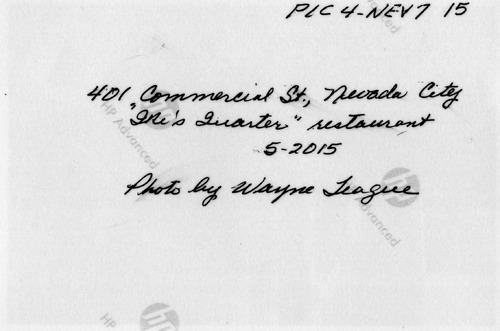 PIC 4-NEV7 15
401 Commercial St., Nevada City
"Ike's Quarter" restaurant
5-2015
Photo by Wayne League
HP Advanced
hp
hp Advanced
HP
hp